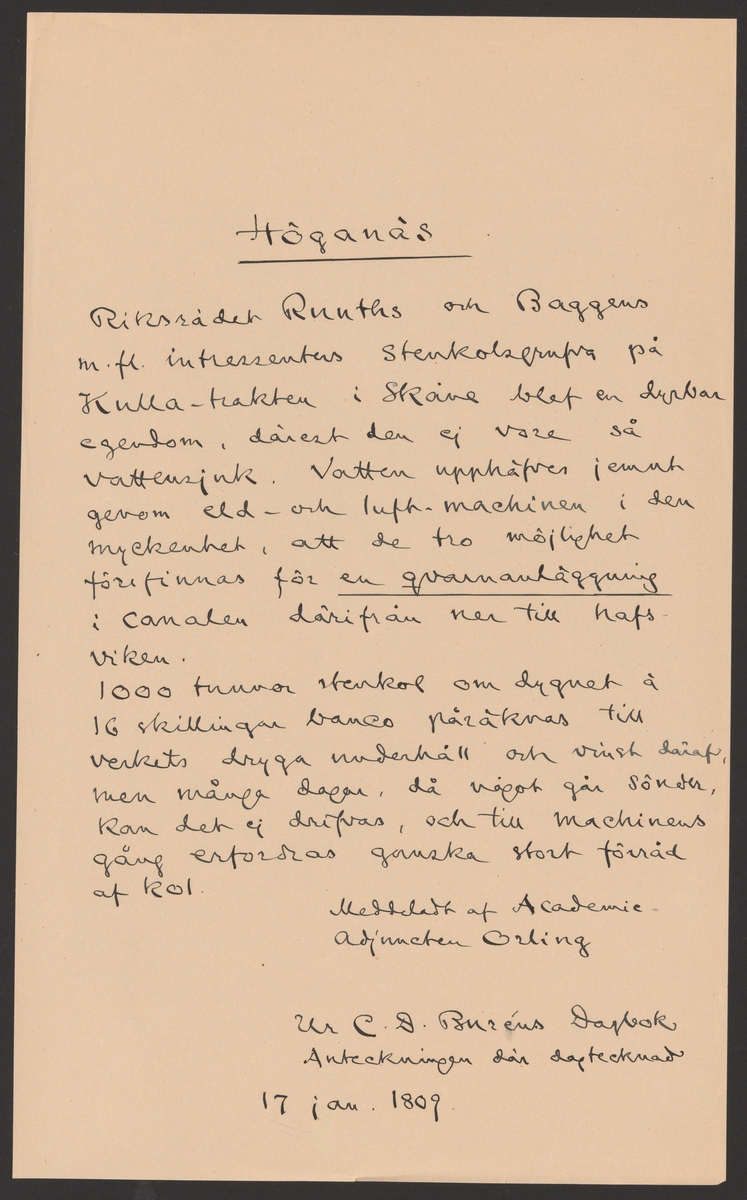 Höganäs
Riksrådet Ruuths och Baggens
m.fl. intressenters stenkolsgrufva på
Kulla-trakten i Skåne blef en dyrbar
egendom, därest den ej vore så
vattensjuk. Vatten upphäfves jemnt
genom eld- och luft-machinen i den
myckenhet, att de tro möjlighet
förefinnas för en qvarnanläggning
i canalen därifrån ner till hafs-
viken.
1000 tunnor stenkol om dygnet à
16 skillingar banco påräknas till
verkets dryga underhåll och vinst däraf,
men många dagar, då något går sönder,
kan det ej drifvas, och till machinens
gång erfordras ganska stort förråd
af kol.
Meddeladt af Academie-
Adjuncten Orling
Ur C. D. Buréns Dagbok
Anteckningen där dagtecknad
17 jan. 1809